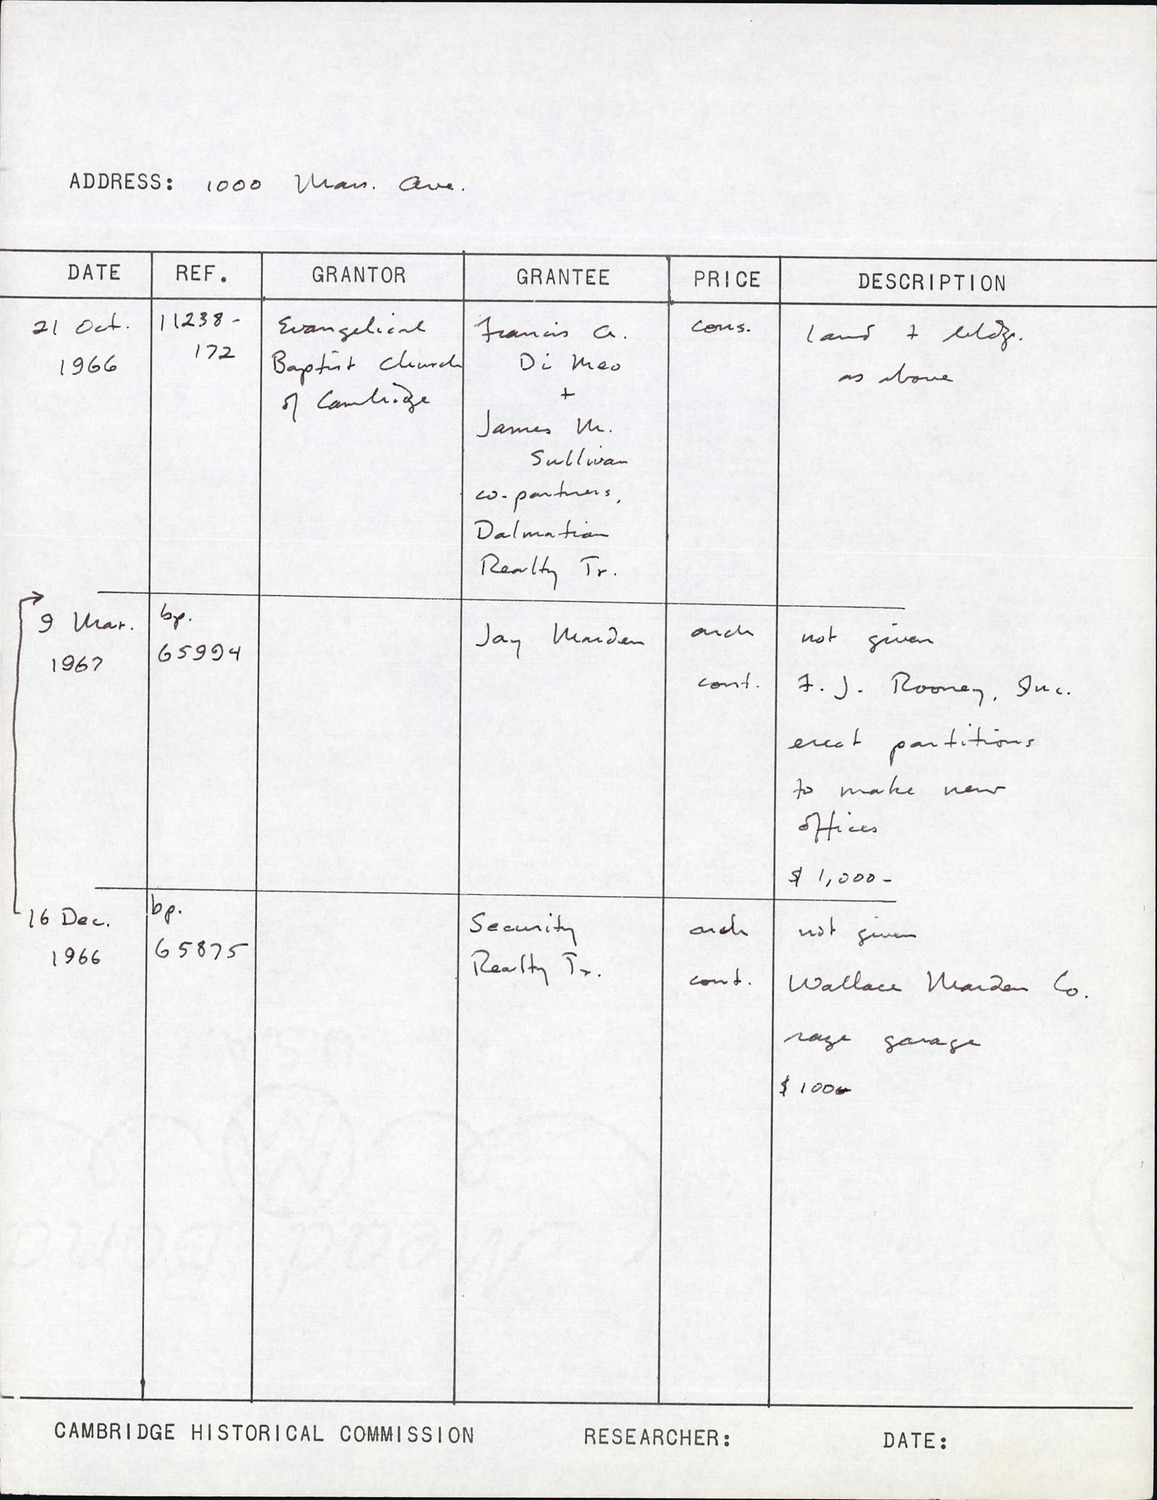 ADDRESS: 1000 Mass. Ave.
DATE REF. GRANTOR GRANTEE PRICE DESCRIPTION
21 Oct. 11238- Evangelical Francis A. cons. land + bldg.
1966 172 Baptist Church Di Meo as above
of Cambridge +
James M.
Sullivan
co-partners,
Dalmatian
Realty Tr.
9 Mar. bp. Jay Marden arch not given
1967 65994 cont. F. J. Rooney, Inc.
erect partitions
to make new
offices
$ 1,000-
16 Dec. bp. Security arch not given
1966 65875 Realty Tr. cont. Wallace Marden Co.
raze garage
$ 100-
CAMBRIDGE HISTORICAL COMMISSION RESEARCHER: DATE: